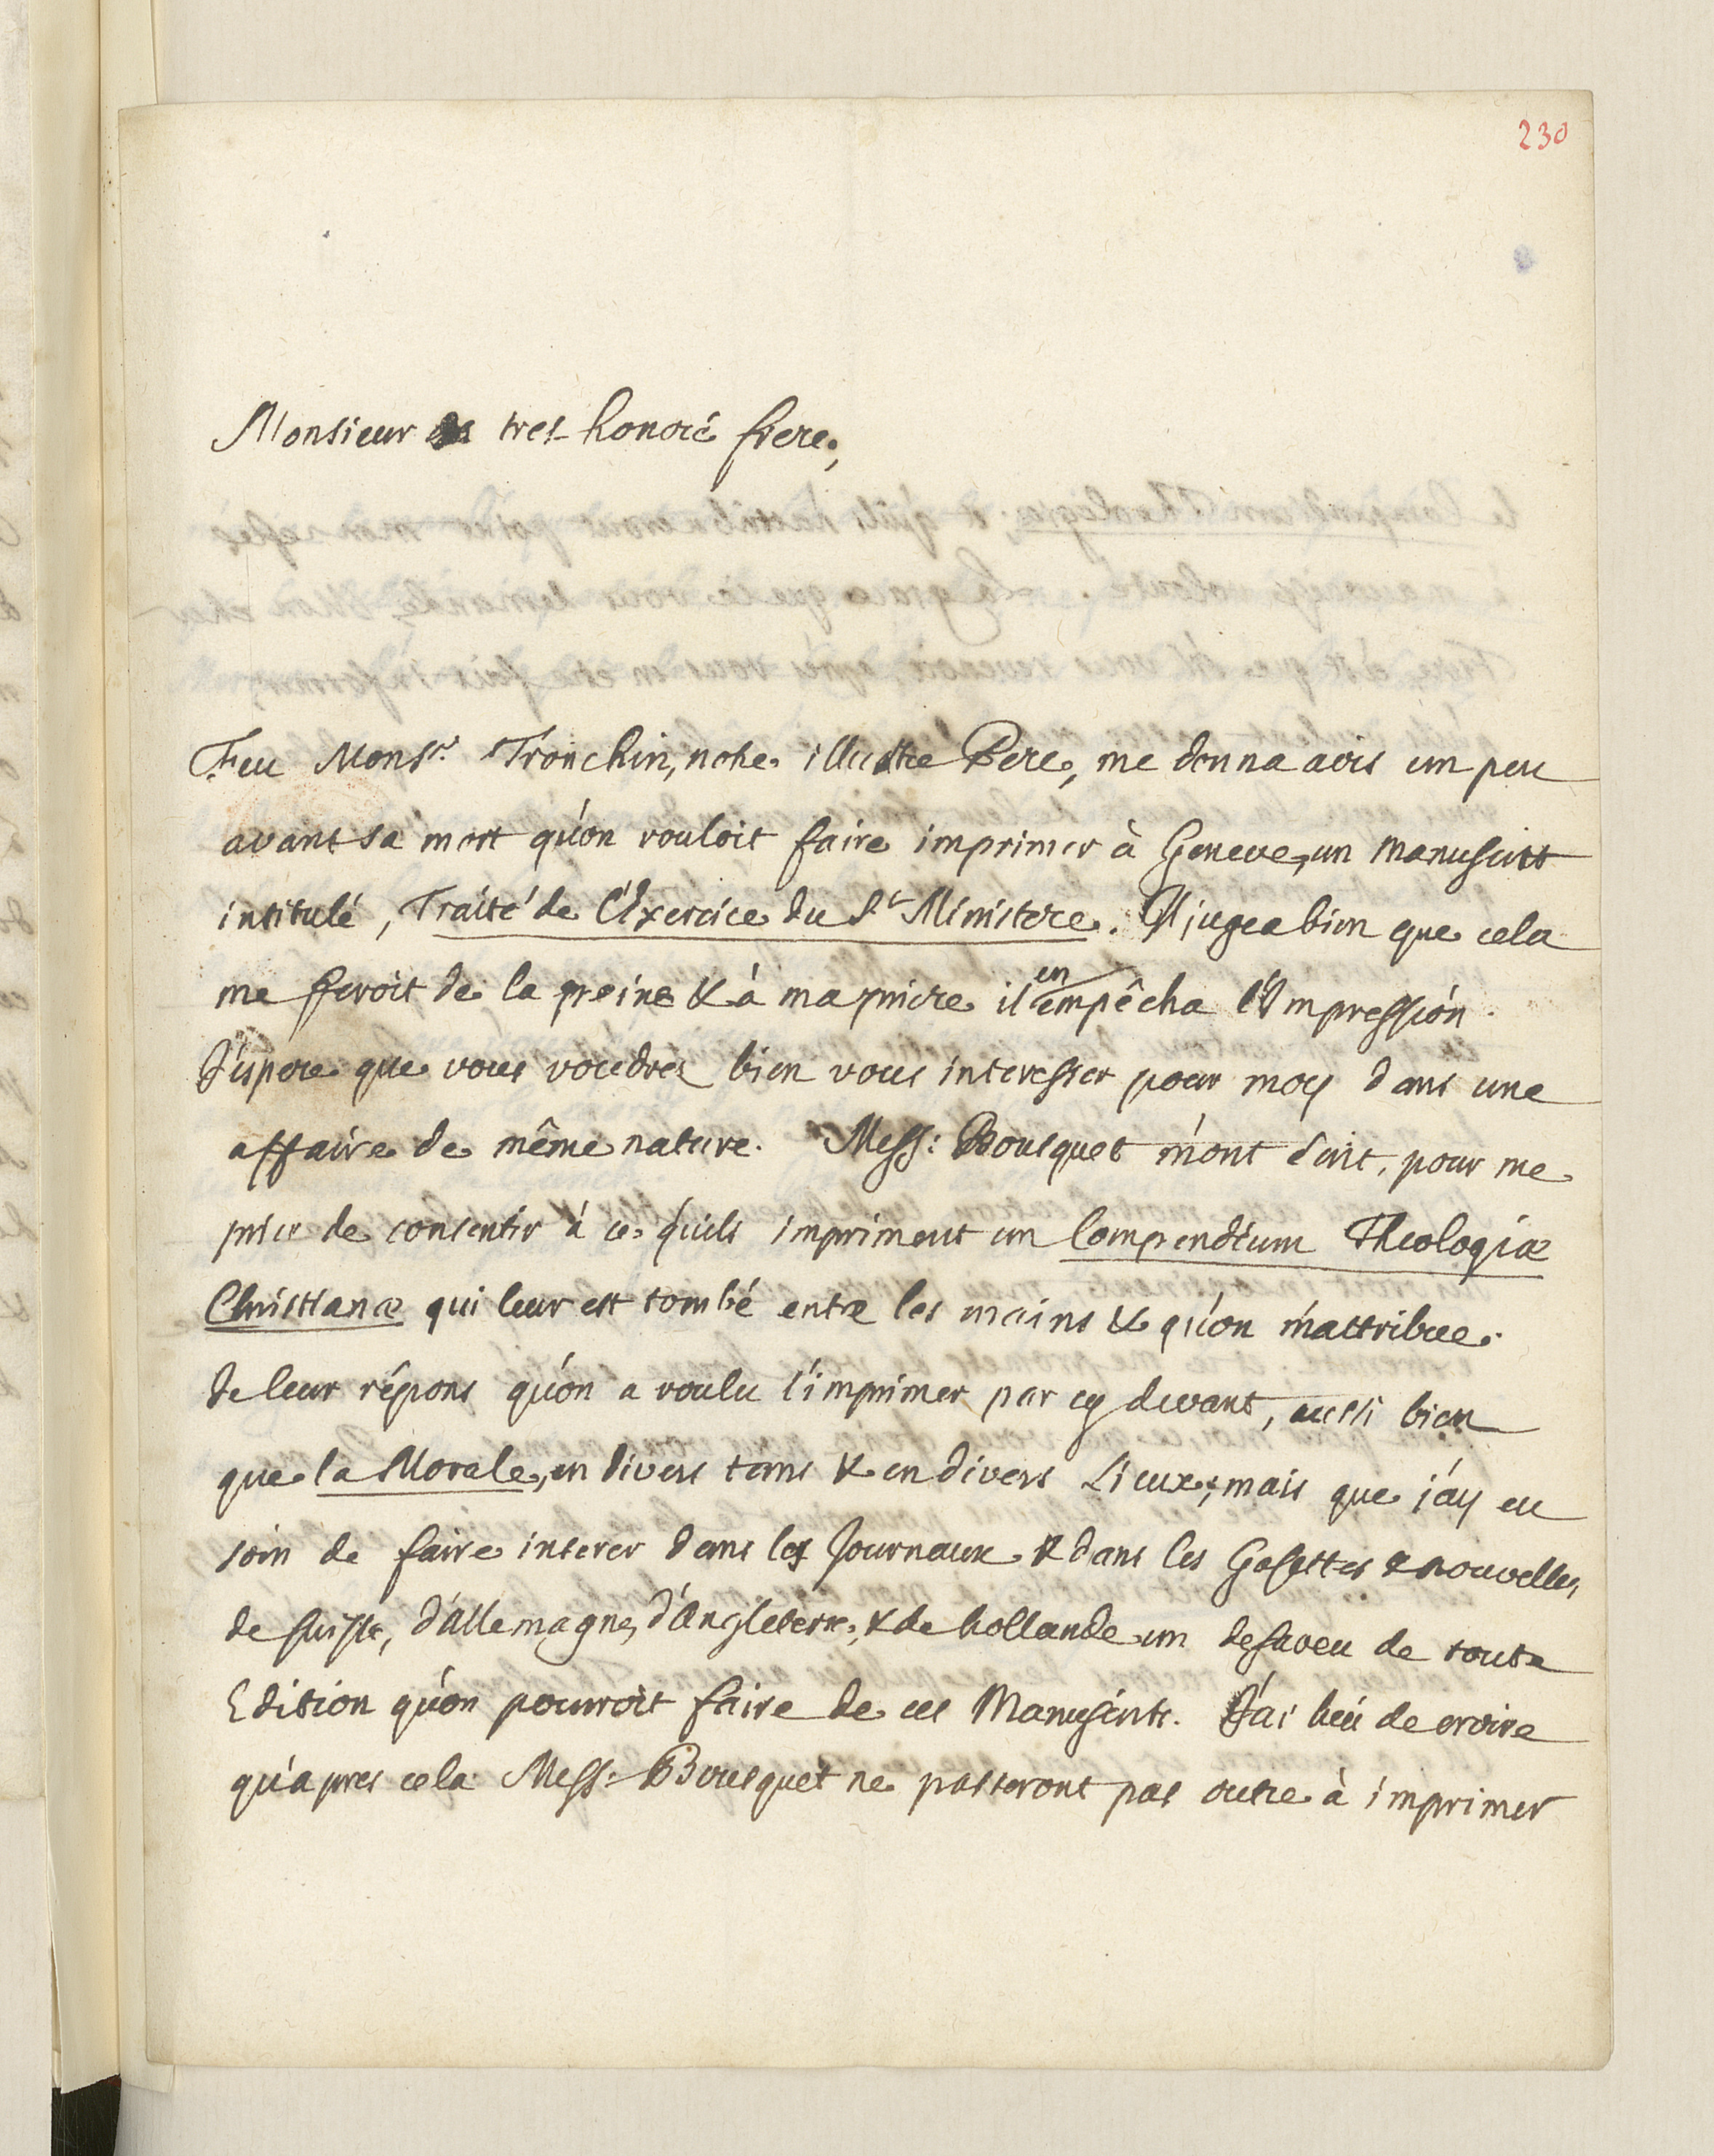 230
Monsieur & tres-honoré frere,
Feu Monsr. Tronchin, notre illustre Pere, me donna avis un peu
avant sa mort qu'on vouloit faire imprimer à Geneve, un manuscitt
intitulé, Traité de l'Exercice du St Ministere. Il jugea bien que cela
me feroit de la peine & à ma priere il en empêcha l'Impression.
J'espere que vous voudrez bien vous interesser pour moy dans une
affaire de même nature. Mess: Bousquet m'ont écrit, pour me
prier de consentir à ce qu'ils impriment un Compendium Theologiæ
Christianæ qui leur est tombé entre les mains & qu'on m'attribue.
Je leur répons qu'on a voulu l'imprimer par cy devant, aussi bien
que la Morale, en divers tems & en divers Lieux; mais que j'ay eu
soin de faire inserer dans les Journaux & dans les Gasettes & nouvelles
de suisse, d'Allemagne, d'Angleterre, & de hollande un desaveu de toute
Edition qu'on pourroit faire de ces Manuscrits. J'ai lieu de croire
qu'apres cela Mess: Bousquet ne passeront pas outre à imprimer